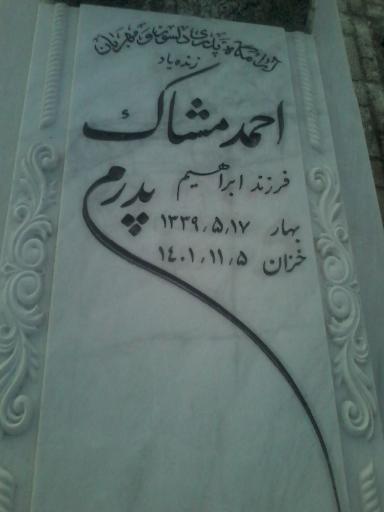 آرامگاه پدری دلسوز و مهربان
زنده یاد
احمد مشاک
فرزند ابراهیم
پدرم
بهار ۱۳۳۹٫۵٫۱۷
خزان ۱۴۰۱٫۱۱٫۵